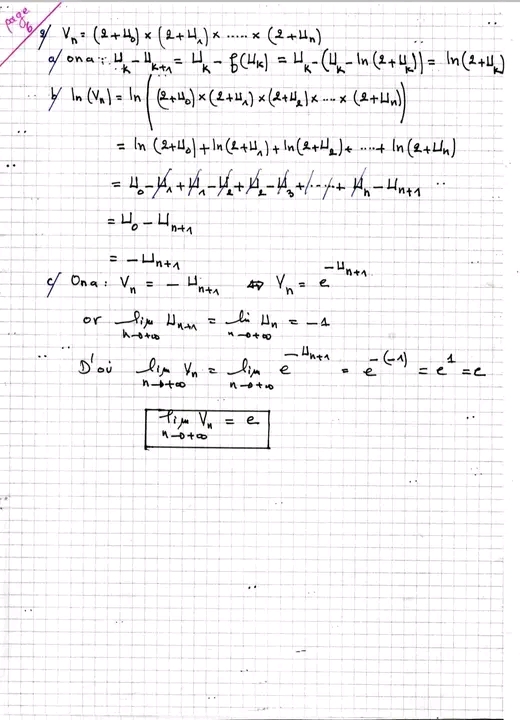 page 06
2/ Vn = (2+U0) × (2+U1) × ..... × (2+Un)
a/ ona : Uk - Uk+1 = Uk - f(Uk) = Uk - (Uk - ln(2+Uk)) = ln(2+Uk)
b/ ln(Vn) = ln((2+U0) × (2+U1) × (2+U2) × ... × (2+Un))
= ln(2+U0) + ln(2+U1) + ln(2+U2) + ....+ ln(2+Un)
= U0 - U1 + U1 - U2 + U2 - U3 + ..... + Un - Un+1
= U0 - Un+1
= - Un+1
c/ Ona : Vn = - Un+1 ⇔ Vn = e^(-Un+1)
or lim n→+∞ Un+1 = lim n→+∞ Un = -1
D'où lim n→+∞ Vn = lim n→+∞ e^(-Un+1) = e^(-(-1)) = e^1 = e
lim n→+∞ Vn = e